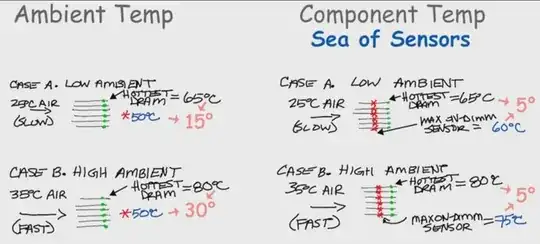 Ambient Temp
CASE A. LOW AMBIENT
25°C AIR
(SLOW)
HOTTEST
DRAM = 65°C
*50°C → 15°
CASE B. HIGH AMBIENT
35°C AIR
(FAST)
HOTTEST
DRAM = 80°C
*50°C → 30°
Component Temp
Sea of Sensors
CASE A. LOW AMBIENT
25°C AIR
(SLOW)
HOTTEST
DRAM = 65°C
→ 5°
MAX ON-DIMM
SENSOR = 60°C
CASE B. HIGH AMBIENT
35°C AIR
(FAST)
HOTTEST
DRAM = 80°C
→ 5°
MAX ON-DIMM
SENSOR = 75°C